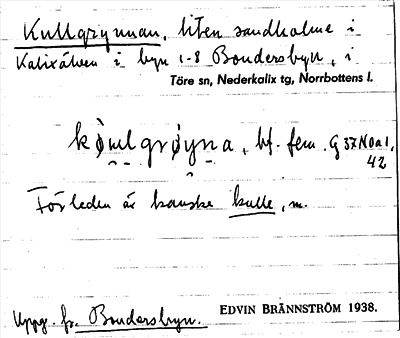 Kullgrynnan, liten sandholme i
Kalixälven i byn 1-8 Bondersbyn, i
Töre sn, Nederkalix tg, Norrbottens l.
grøyna, bf. fem. G 37 N 0 a 1,
42
Förleden är kanske kulle, m.
Uppg. fr. Bondersbyn. EDVIN BRÄNNSTRÖM 1938.